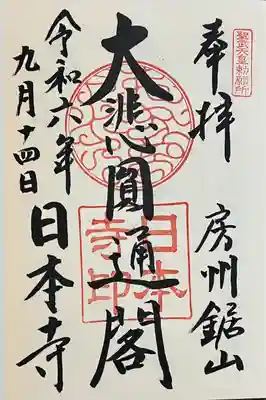 聖武天皇勅願所
奉拝
房州鋸山
大悲圓通閣
日本寺印
令和六年
九月十四日
日本寺